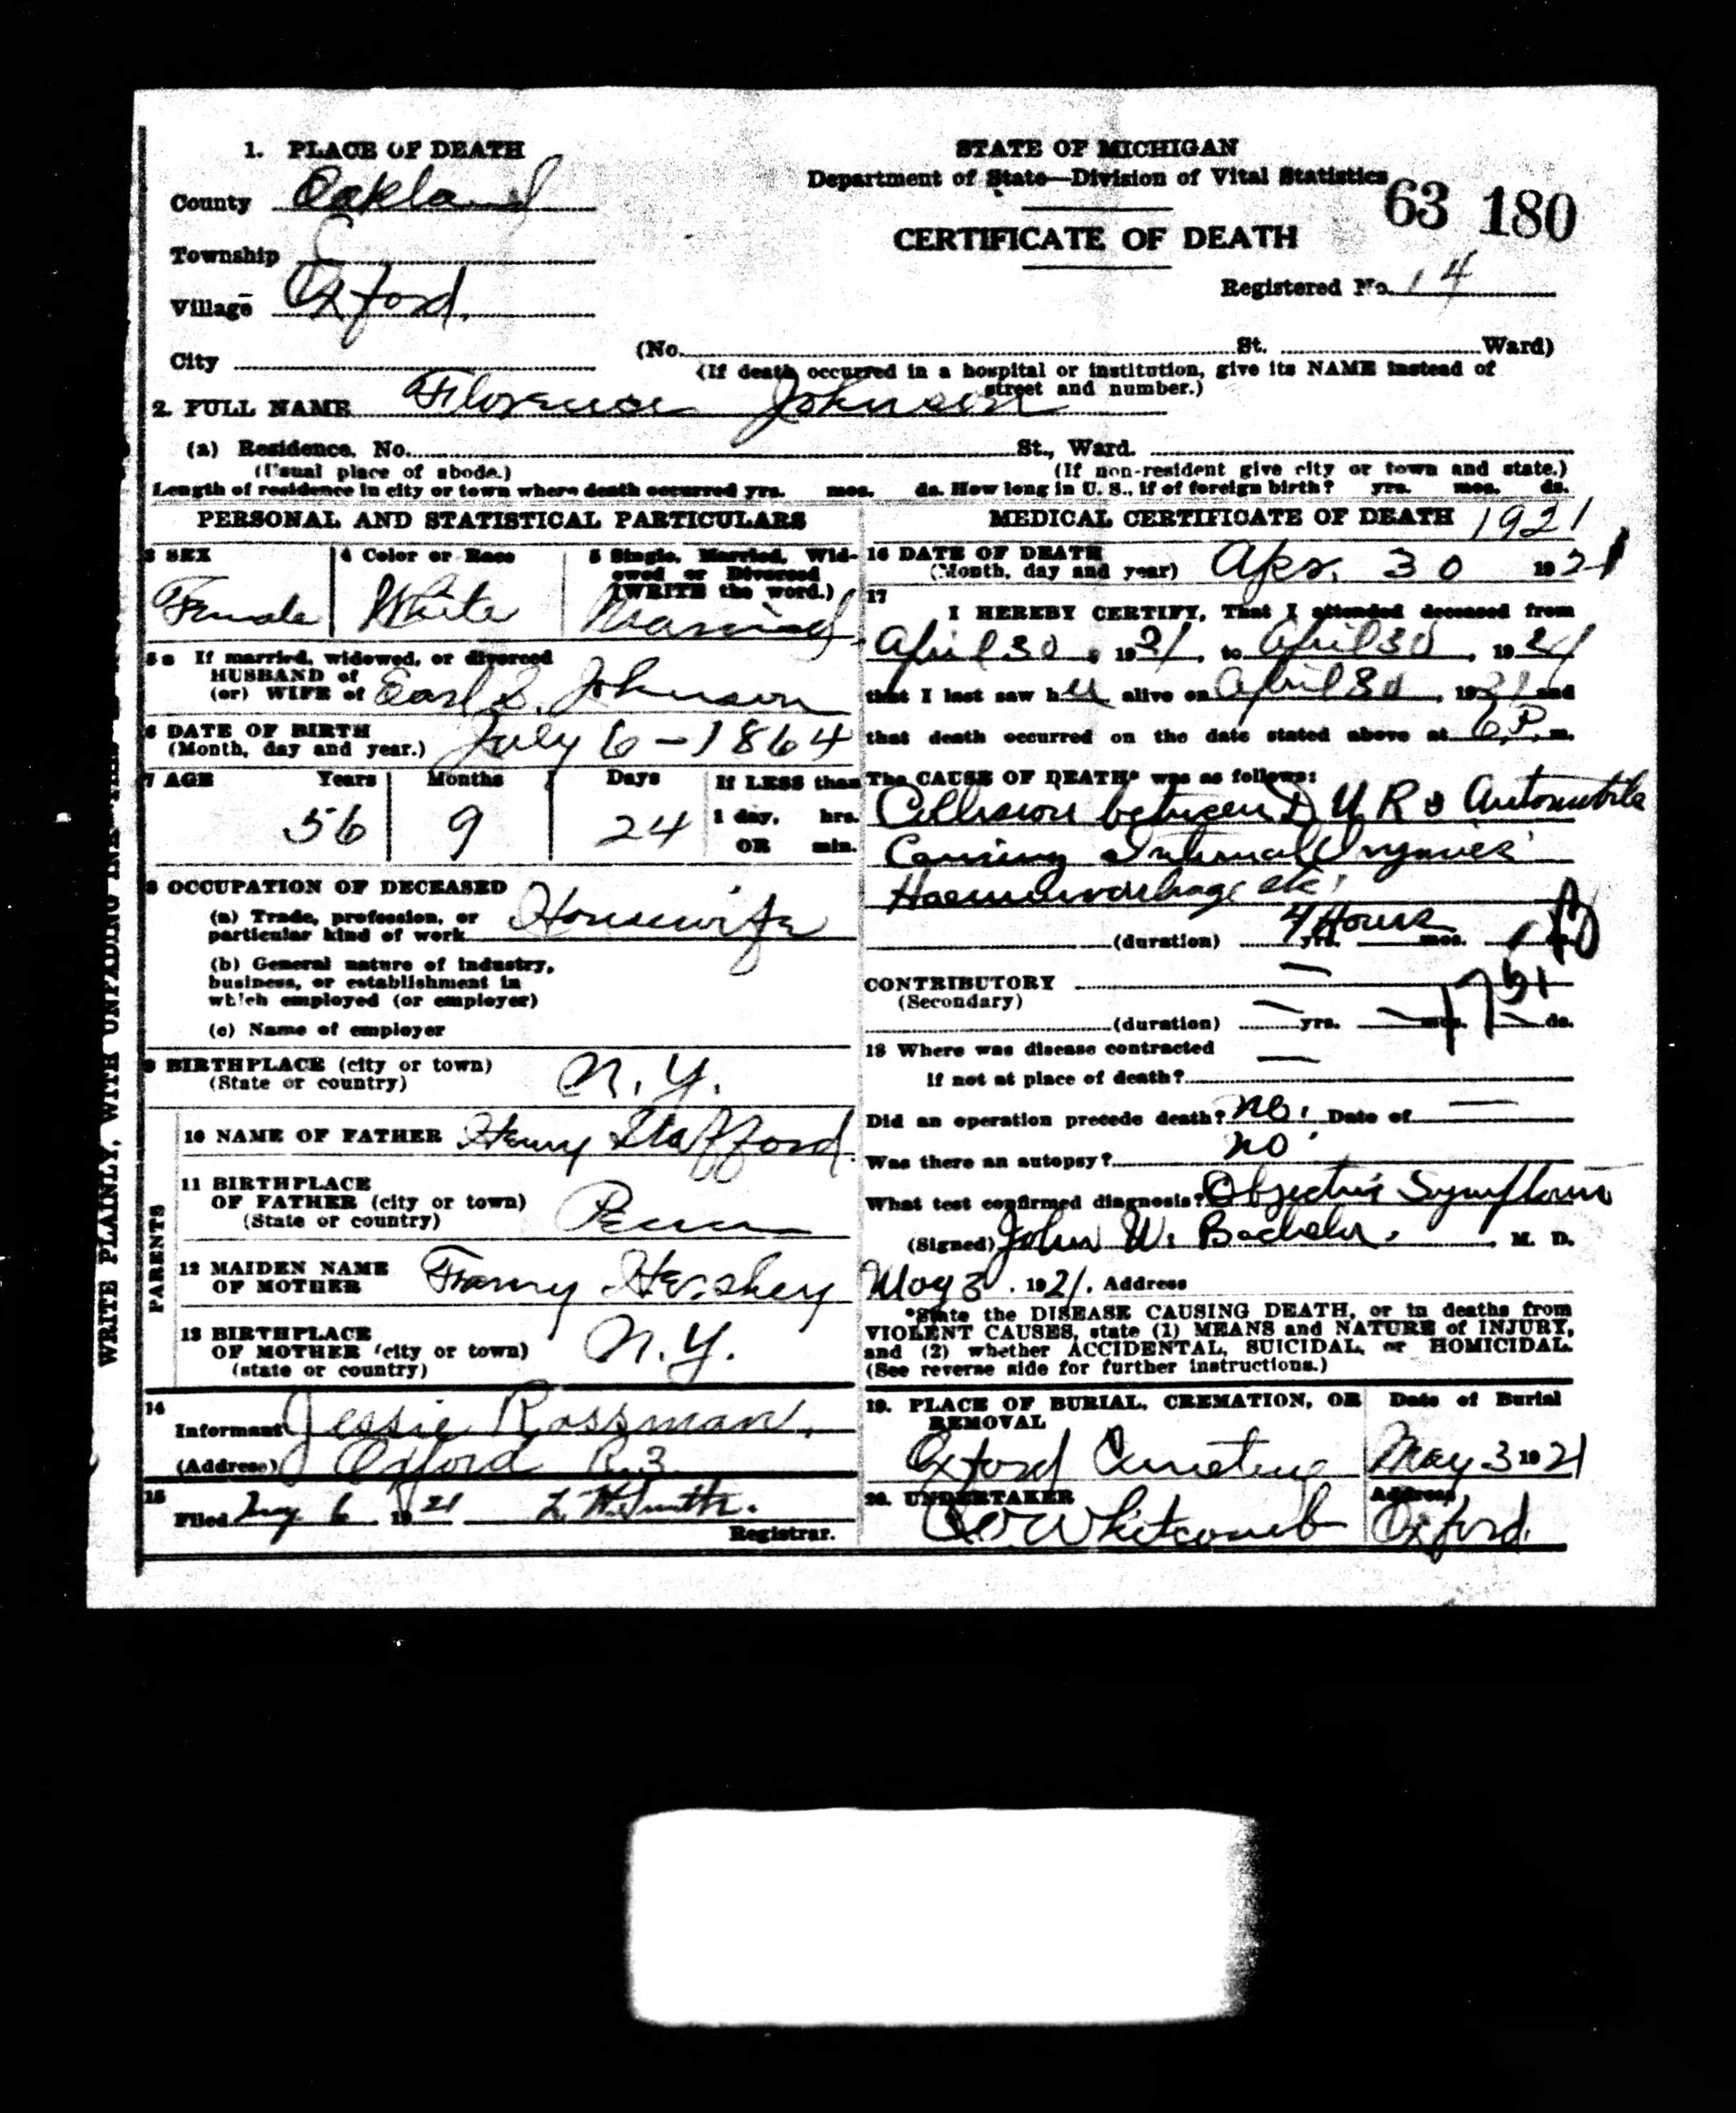 1. PLACE OF DEATH
County Oakland
Township
Village Oxford.
City
STATE OF MICHIGAN
Department of State—Division of Vital Statistics
63 180
CERTIFICATE OF DEATH
Registered No. 14
(No. St. Ward)
(If death occurred in a hospital or institution, give its NAME instead of
street and number.)
2. FULL NAME Florence Johnson
(a) Residence. No. St., Ward.
(Usual place of abode.) (If non-resident give city or town and state.)
Length of residence in city or town where death occurred yrs. mos. ds. How long in U. S., if of foreign birth? yrs. mos. ds.
PERSONAL AND STATISTICAL PARTICULARS
3 SEX
Female
4 Color or Race
White
5 Single, Married, Wid-
owed or Divorced
(WRITE the word.)
Married
5a If married, widowed, or divorced
HUSBAND of
(or) WIFE of Earl S. Johnson
6 DATE OF BIRTH
(Month, day and year.) July 6-1864
7 AGE Years Months Days If LESS than
56 9 24 1 day, hrs.
OR min.
8 OCCUPATION OF DECEASED
(a) Trade, profession, or
particular kind of work Housewife
(b) General nature of industry,
business, or establishment in
which employed (or employer)
(c) Name of employer
9 BIRTHPLACE (city or town)
(State or country) N.Y.
PARENTS
10 NAME OF FATHER Henry Stafford
11 BIRTHPLACE
OF FATHER (city or town)
(State or country) Penn
12 MAIDEN NAME
OF MOTHER Fanny Hershey
13 BIRTHPLACE
OF MOTHER (city or town)
(state or country) N.Y.
14
Informant Jessie Rossman,
(Address) Oxford R.3
15
Filed 6 1921 Smith.
Registrar.
WRITE PLAINLY, WITH UNFADING
MEDICAL CERTIFICATE OF DEATH 1921
16 DATE OF DEATH
(Month, day and year) Apr. 30 1921
17
I HEREBY CERTIFY, That I attended deceased from
April 30, 1921, to April 30, 1921
that I last saw her alive on April 30, 1921 and
that death occurred on the date stated above at 6 P. m.
The CAUSE OF DEATH* was as follows:
Collision between D U R & Automobile
Causing Internal Injuries
Haemorrhage etc.
4 Hours
(duration) yrs. mos.
CONTRIBUTORY —
(Secondary)
(duration) — yrs. — mos. — ds.
18 Where was disease contracted
if not at place of death? —
Did an operation precede death? no. Date of —
Was there an autopsy? no
What test confirmed diagnosis? Objective Symptoms
(Signed) John W. Bachelor. M. D.
May 3, 1921. Address
*State the DISEASE CAUSING DEATH, or in deaths from
VIOLENT CAUSES, state (1) MEANS and NATURE of INJURY,
and (2) whether ACCIDENTAL, SUICIDAL, or HOMICIDAL.
(See reverse side for further instructions.)
19. PLACE OF BURIAL, CREMATION, OR
REMOVAL
Oxford Cemetery
Date of Burial
May 3 1921
20. UNDERTAKER
Whitcomb
Address
Oxford.